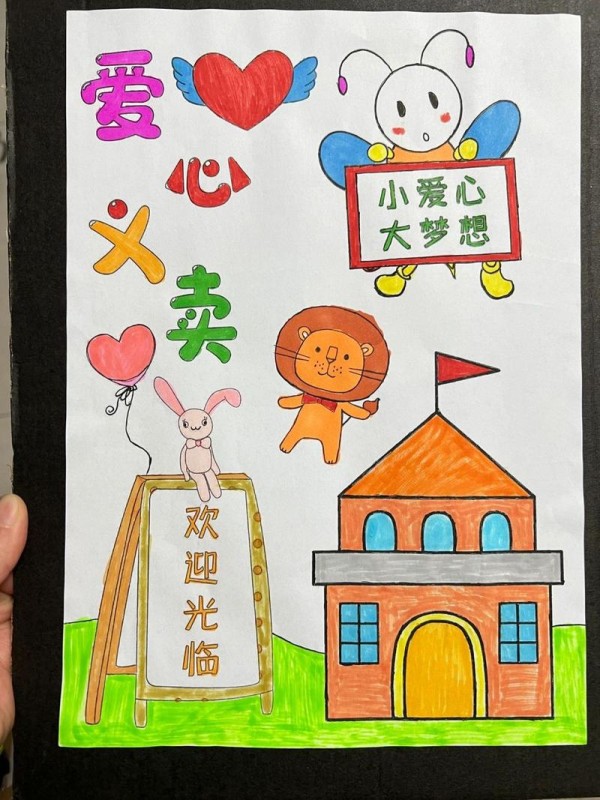 爱
心
义
卖
小爱心
大梦想
欢
迎
光
临